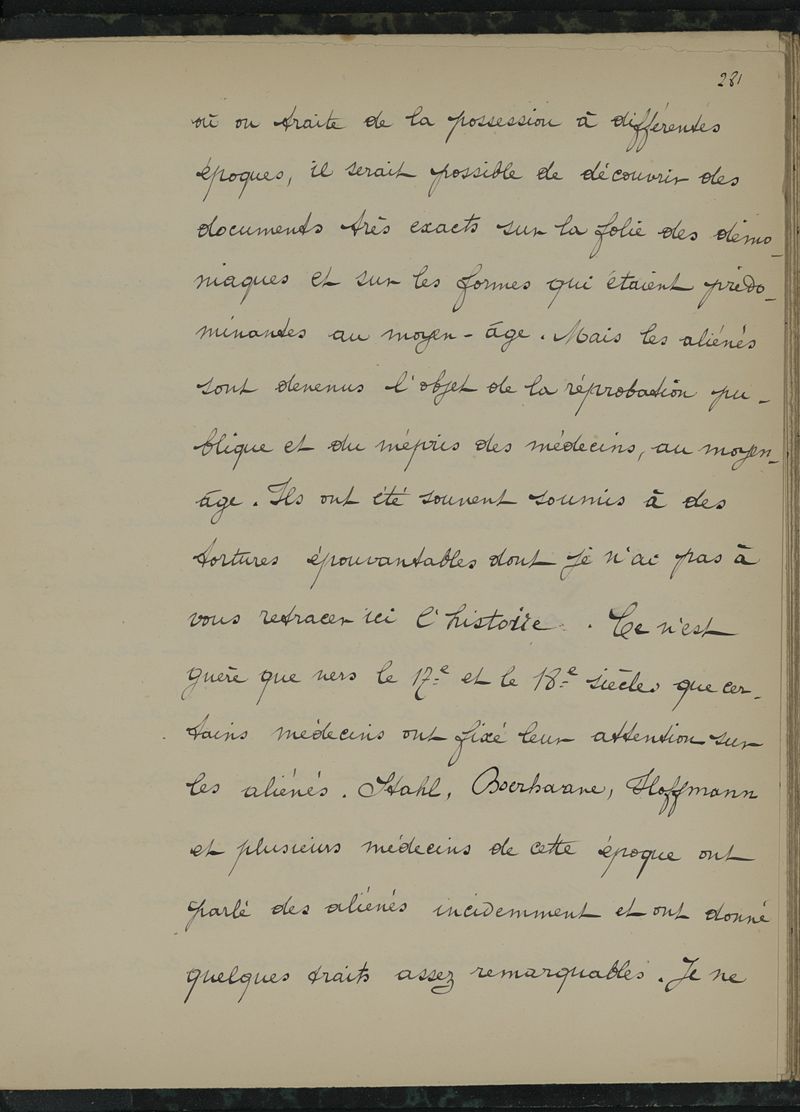 281
où on traite de la possession à différentes
époques, il serait possible de découvrir des
documents très exacts sur la folie des démo-
niaques et sur les formes qui étaient prédo-
minantes au moyen-âge. Mais les aliénés
sont devenus l'objet de la réprobation pu-
blique et du mépris des médecins, au moyen-
âge. Ils ont été souvent soumis à des
tortures épouvantables dont je n'ai pas à
vous retracer ici l'histoire. Ce n'est
guère que vers le 17e et le 18e siècles que cer-
tains médecins ont fixé leur attention sur
les aliénés. Stahl, Boerhaave, Hoffmann
et plusieurs médecins de cette époque ont
parlé des aliénés incidemment et ont donné
quelques traits assez remarquables. Je ne